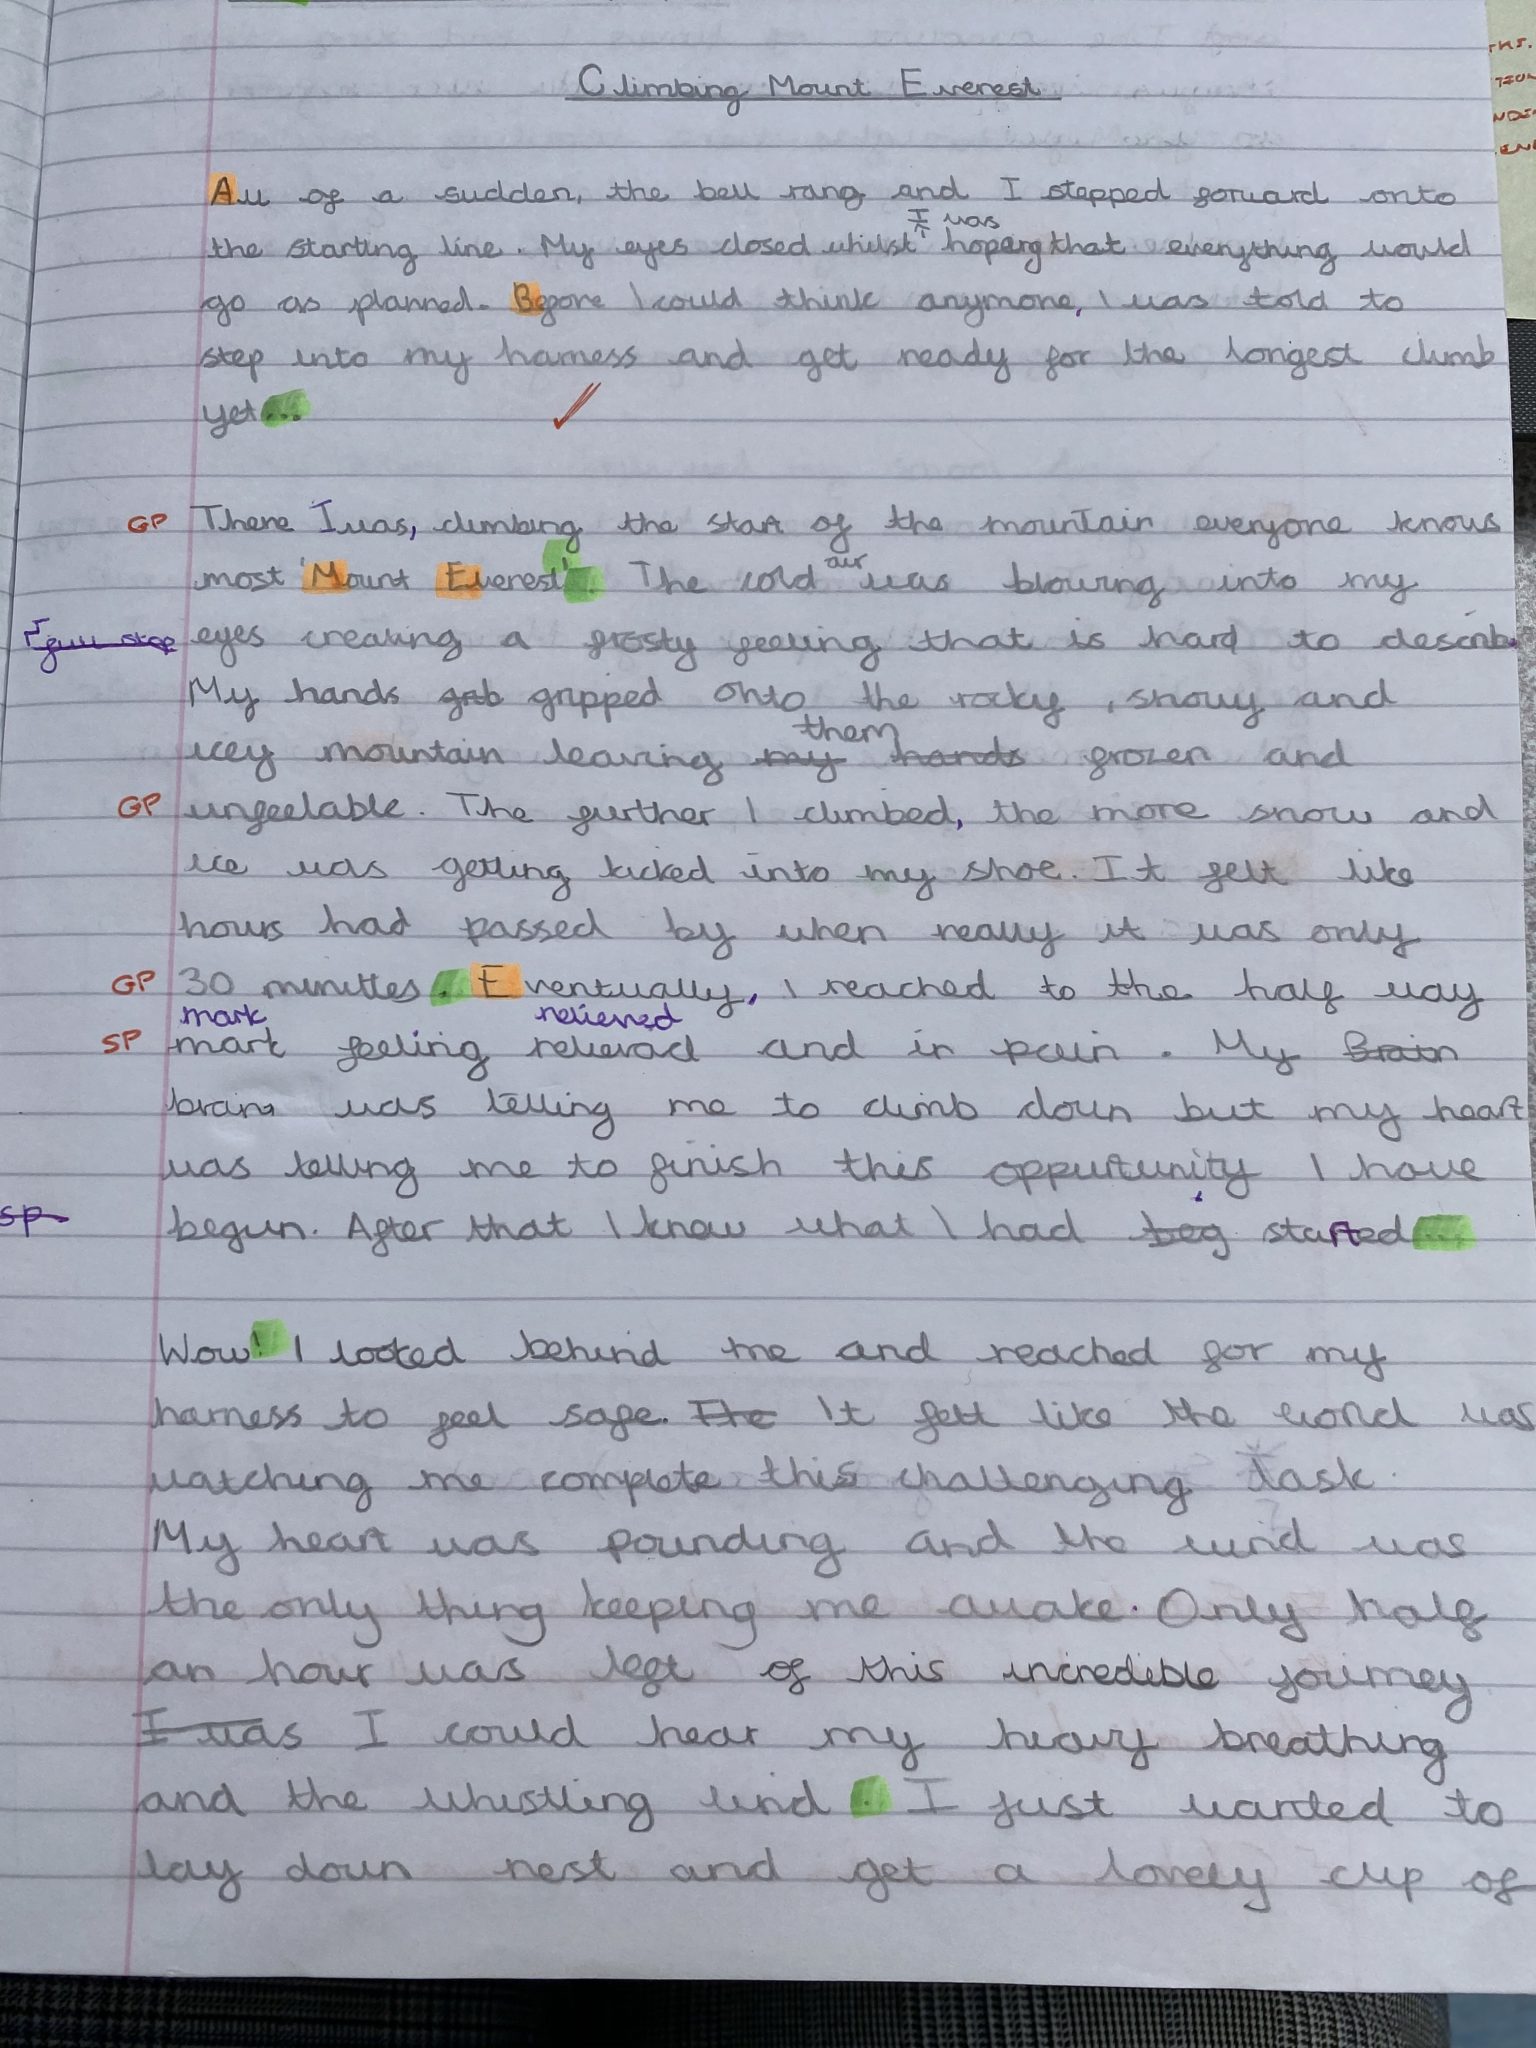 Climbing Mount Everest
All of a sudden, the bell rang and I stepped forward onto
I was
the starting line. My eyes closed whilst hopeing that everything would
go as planned. Before I could think anymore, I was told to
step into my harness and get ready for the longest climb
yet...
GP There I was, climbing the start of the mountain everyone knows
air
most 'Mount Everest'. The cold was blowing into my
full stop eyes creating a frosty feeling that is hard to describ.
My hands grb gripped onto the rocky, snowy and
them
icey mountain leaving my hands frozen and
GP unfeelable. The further I climbed, the more snow and
ice was getting kicked into my shoe. It felt like
hours had passed by when really it was only
GP 30 minuttes. Eventually, I reached to the half way
mark relieved
SP mark feeling relievad and in pain. My Brain
brain was telling me to climb down but my heart
was telling me to finish this oppurtunity I have
SP begun. After that I knew what I had beg started...
Wow! I looked behind me and reached for my
harness to feel safe. Ite It felt like the world was
watching me complete this challenging task.
My heart was pounding and the wind was
the only thing keeping me awake. Only half
an hour was left of this incredible journey
I was I could hear my heavy breathing
and the whistling wind. I just wanted to
lay down rest and get a lovely cup of